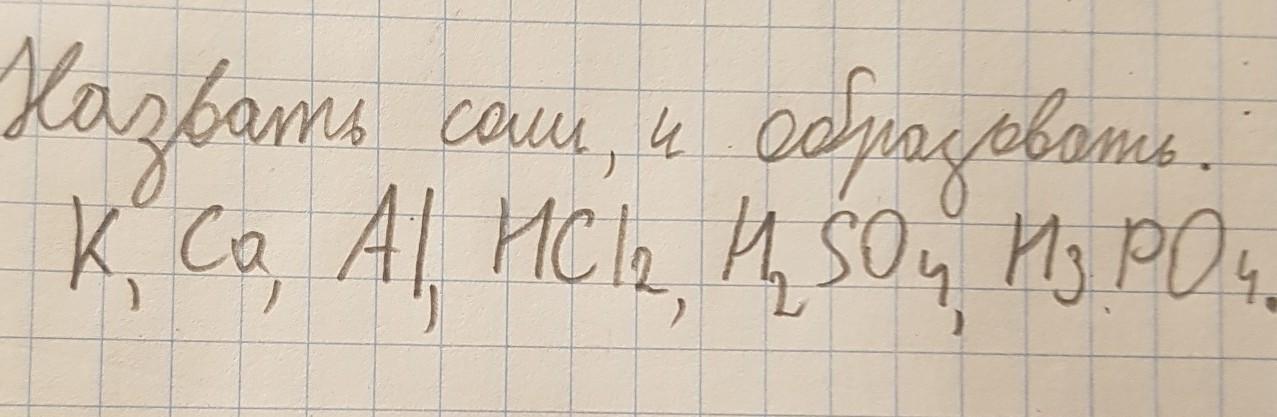 Назвать соли, и образовать.
K, Ca, Al, HCl₂, H₂SO₄, H₃PO₄.